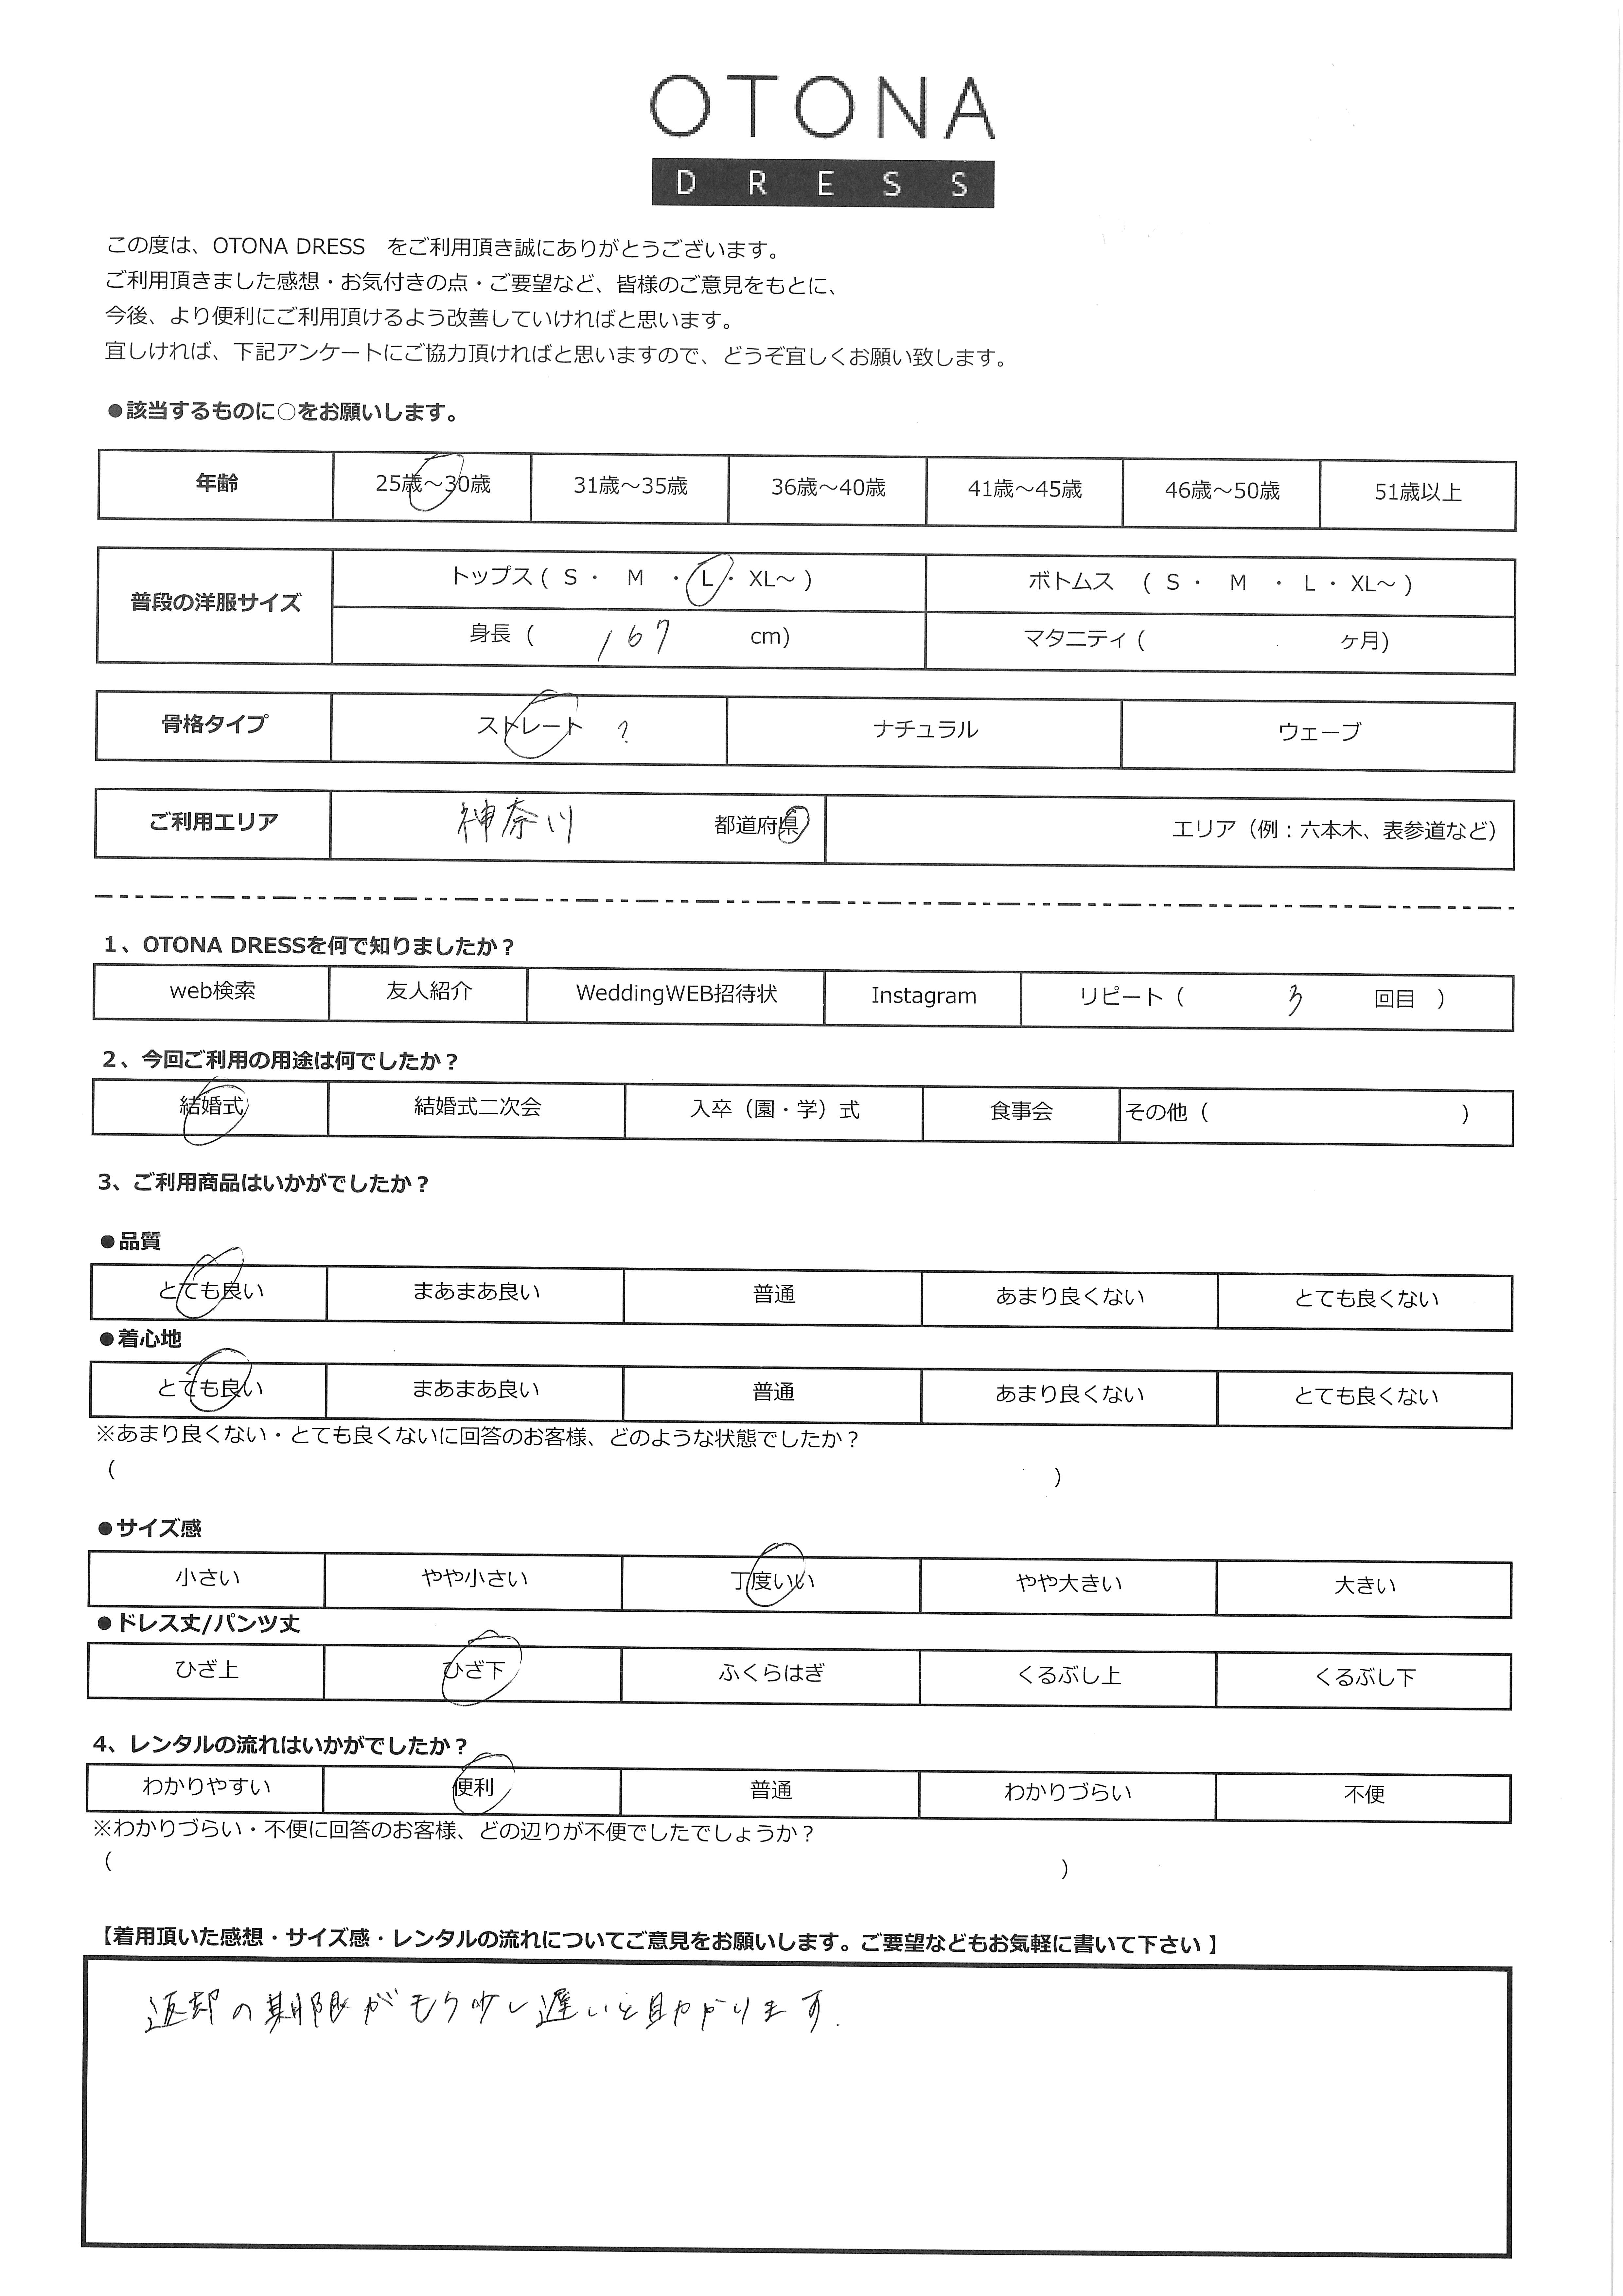 OTONA
DRESS
この度は、OTONA DRESS　をご利用頂き誠にありがとうございます。
ご利用頂きました感想・お気付きの点・ご要望など、皆様のご意見をもとに、
今後、より便利にご利用頂けるよう改善していければと思います。
宜しければ、下記アンケートにご協力頂ければと思いますので、どうぞ宜しくお願い致します。
●該当するものに○をお願いします。
年齢 25歳～30歳 31歳～35歳 36歳～40歳 41歳～45歳 46歳～50歳 51歳以上
普段の洋服サイズ トップス ( S ・ M ・ L ・ XL～ ) ボトムス ( S ・ M ・ L ・ XL～ )
身長 ( 167 cm) マタニティ ( ヶ月)
骨格タイプ ストレート ? ナチュラル ウェーブ
ご利用エリア 神奈川 都道府県 エリア（例：六本木、表参道など）
1、OTONA DRESSを何で知りましたか？
web検索 友人紹介 WeddingWEB招待状 Instagram リピート（ 3 回目 ）
2、今回ご利用の用途は何でしたか？
結婚式 結婚式二次会 入卒（園・学）式 食事会 その他（ ）
3、ご利用商品はいかがでしたか？
●品質
とても良い まあまあ良い 普通 あまり良くない とても良くない
●着心地
とても良い まあまあ良い 普通 あまり良くない とても良くない
※あまり良くない・とても良くないに回答のお客様、どのような状態でしたか？
（ ）
●サイズ感
小さい やや小さい 丁度いい やや大きい 大きい
●ドレス丈/パンツ丈
ひざ上 ひざ下 ふくらはぎ くるぶし上 くるぶし下
4、レンタルの流れはいかがでしたか？
わかりやすい 便利 普通 わかりづらい 不便
※わかりづらい・不便に回答のお客様、どの辺りが不便でしたでしょうか？
（ ）
【着用頂いた感想・サイズ感・レンタルの流れについてご意見をお願いします。ご要望などもお気軽に書いて下さい 】
返却の期限がもう少し遅いと助かります.